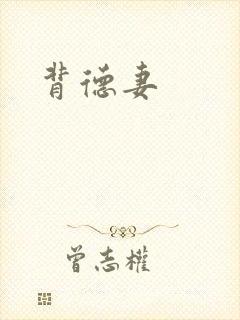 背德妻
曾志權